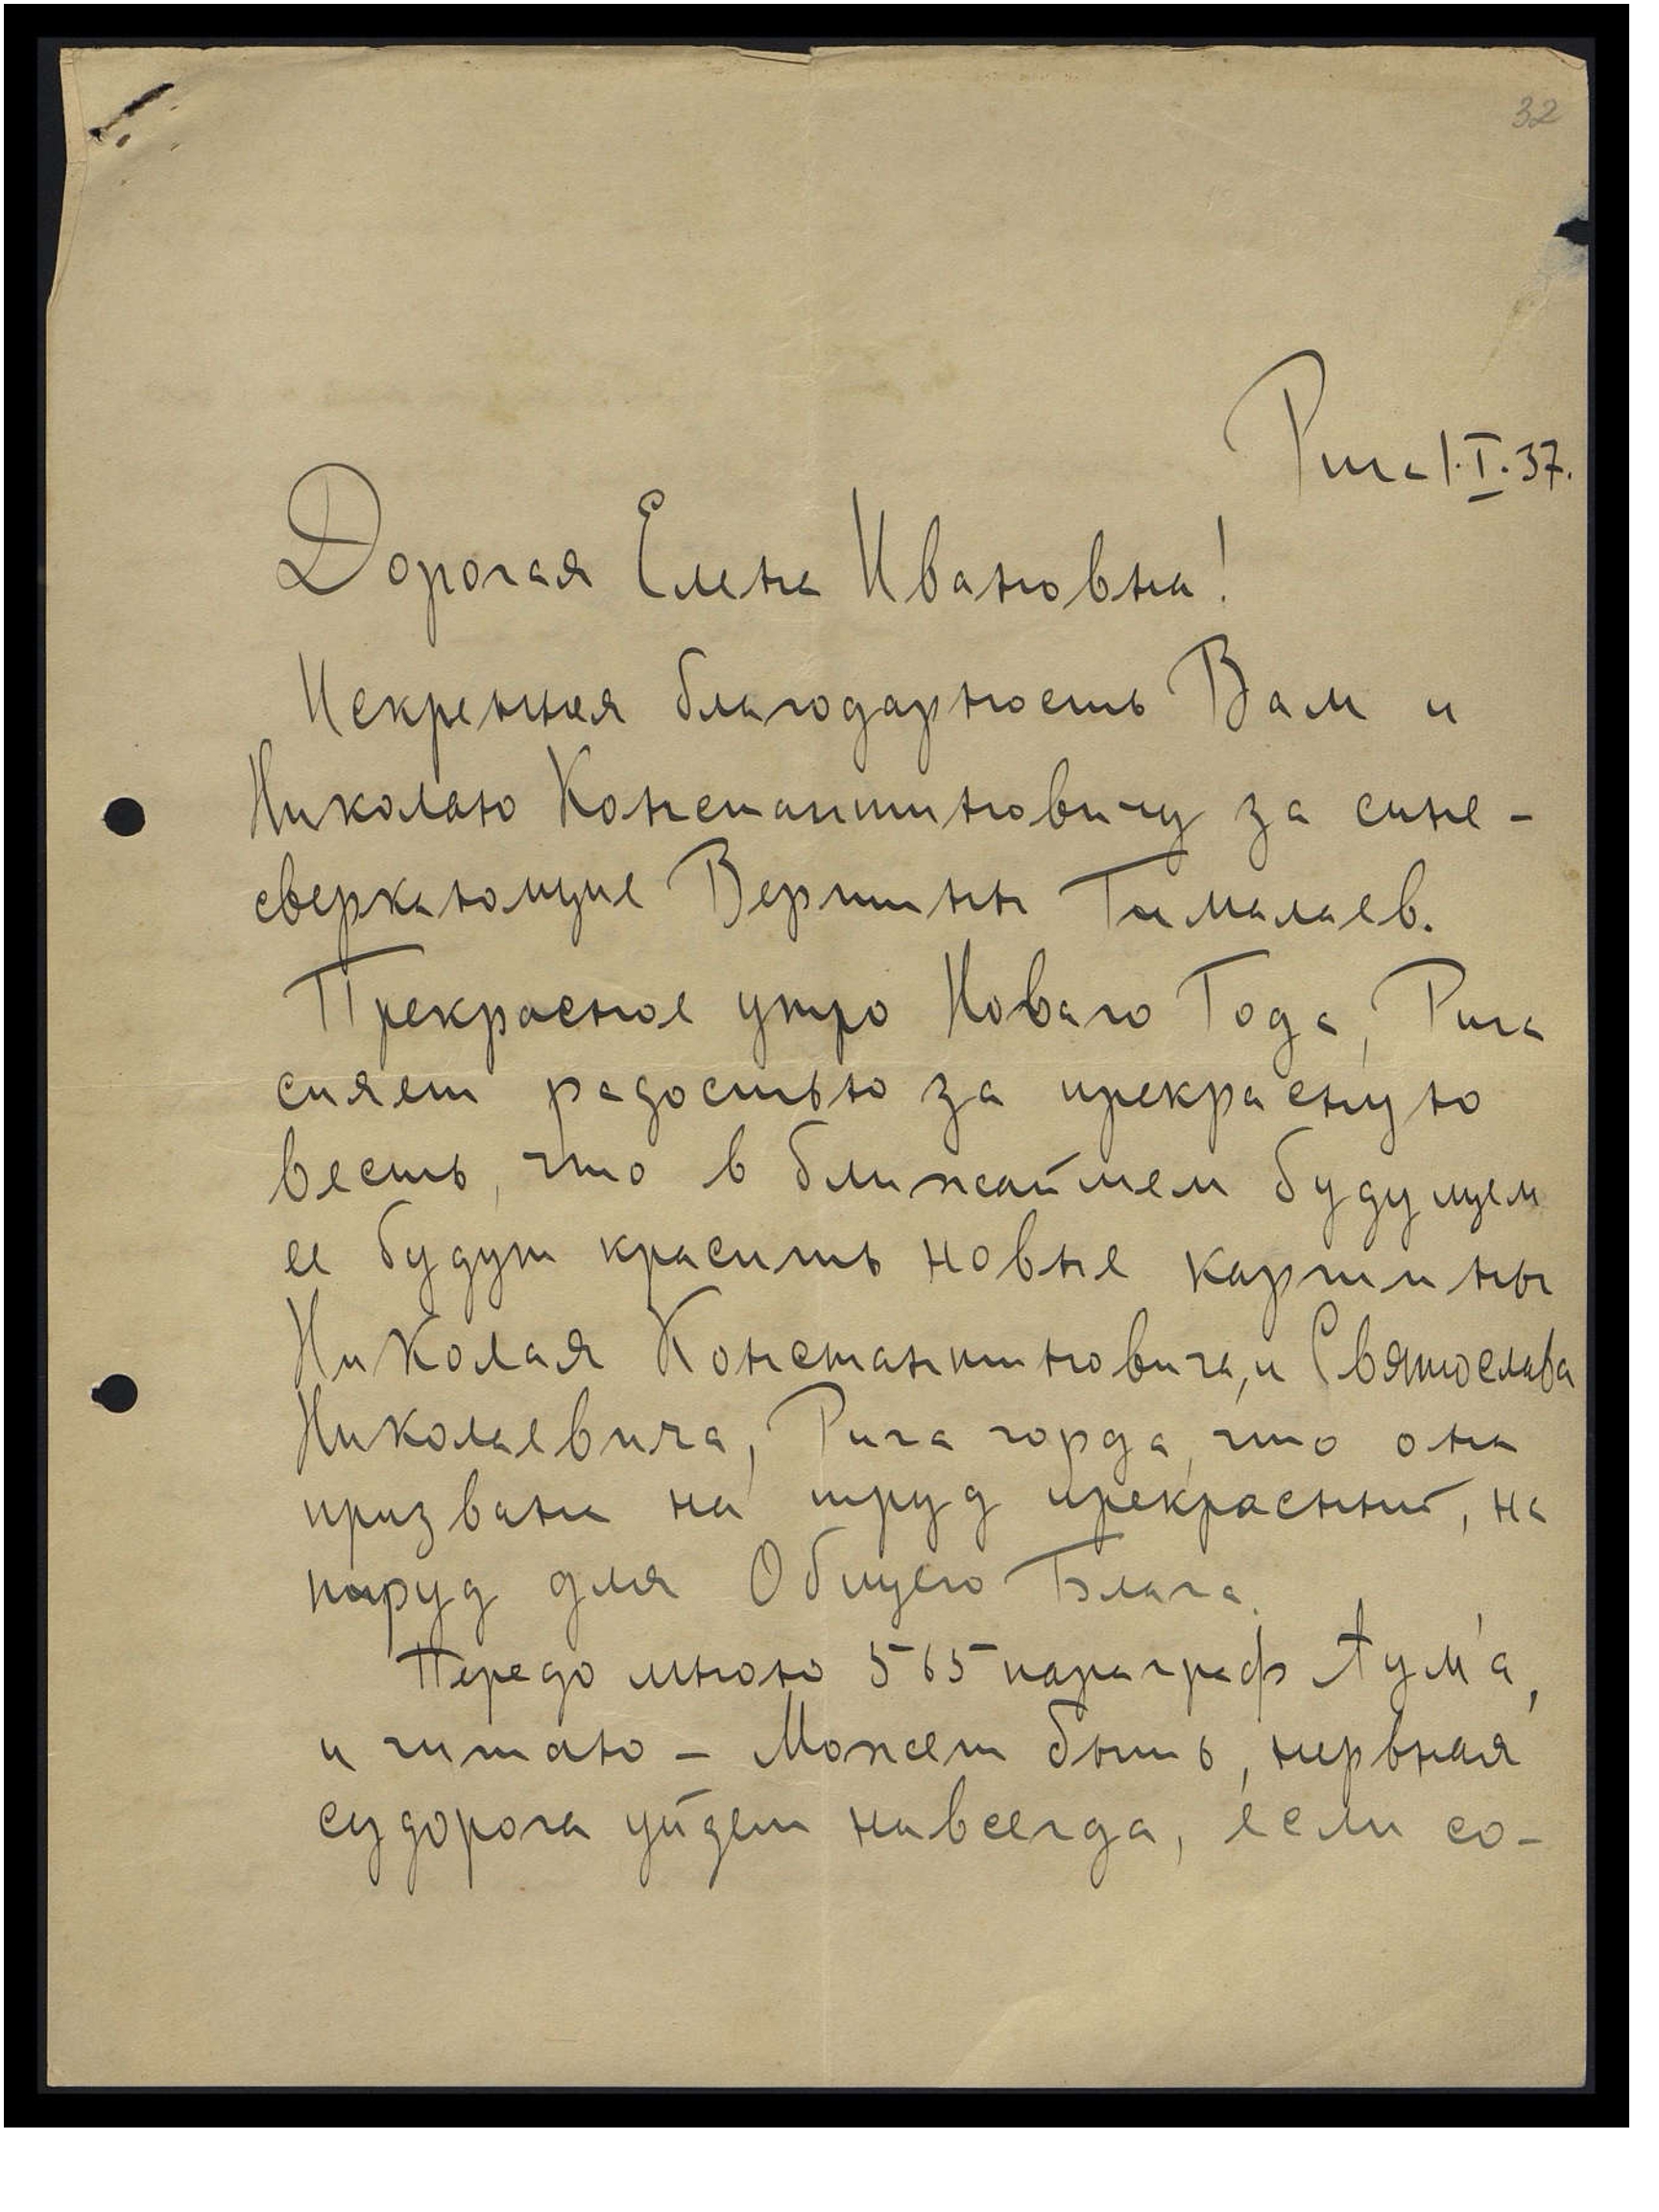 32
Рига 1.I.37.
Дорогая Елена Ивановна!
Искренняя благодарность Вам и
Николаю Константиновичу за сине-
сверкающие Вершины Гималаев.
Прекрасное утро Новаго Года, Рига
сияет радостью за прекрасную
весть, что в ближайшем будущем
ее будут красить новые картины
Николая Константиновича, и Святослава
Николаевича, Рига горда, что она
призвана на труд прекрасный, на
труд для Общего Блага.
Передо мною 565 параграф Аум'а,
и читаю – Может быть, нервная
судорога уйдет навсегда, если со-